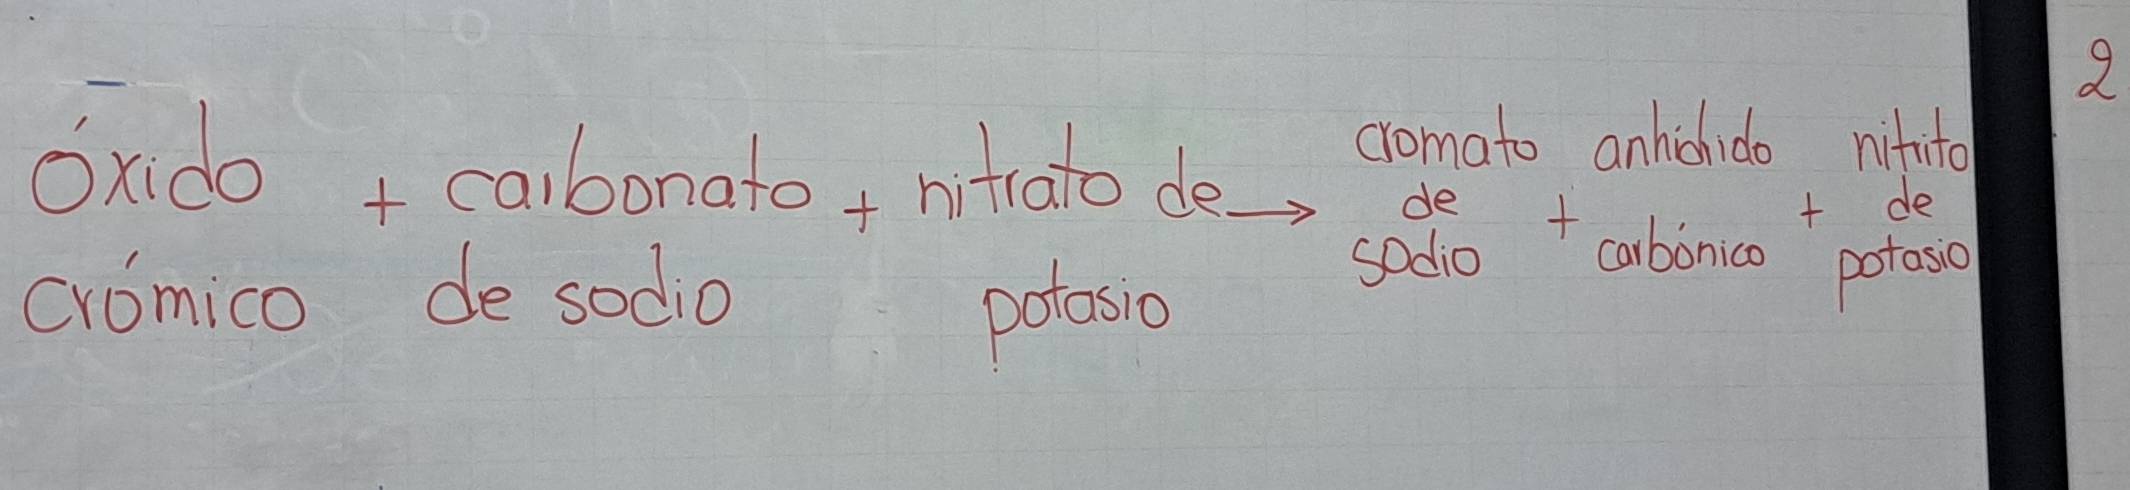 óxido + carbonato + nitrato de → cromato de sodio + anhídrido carbónico + nitrito de potasio
crómico de sodio potasio
2